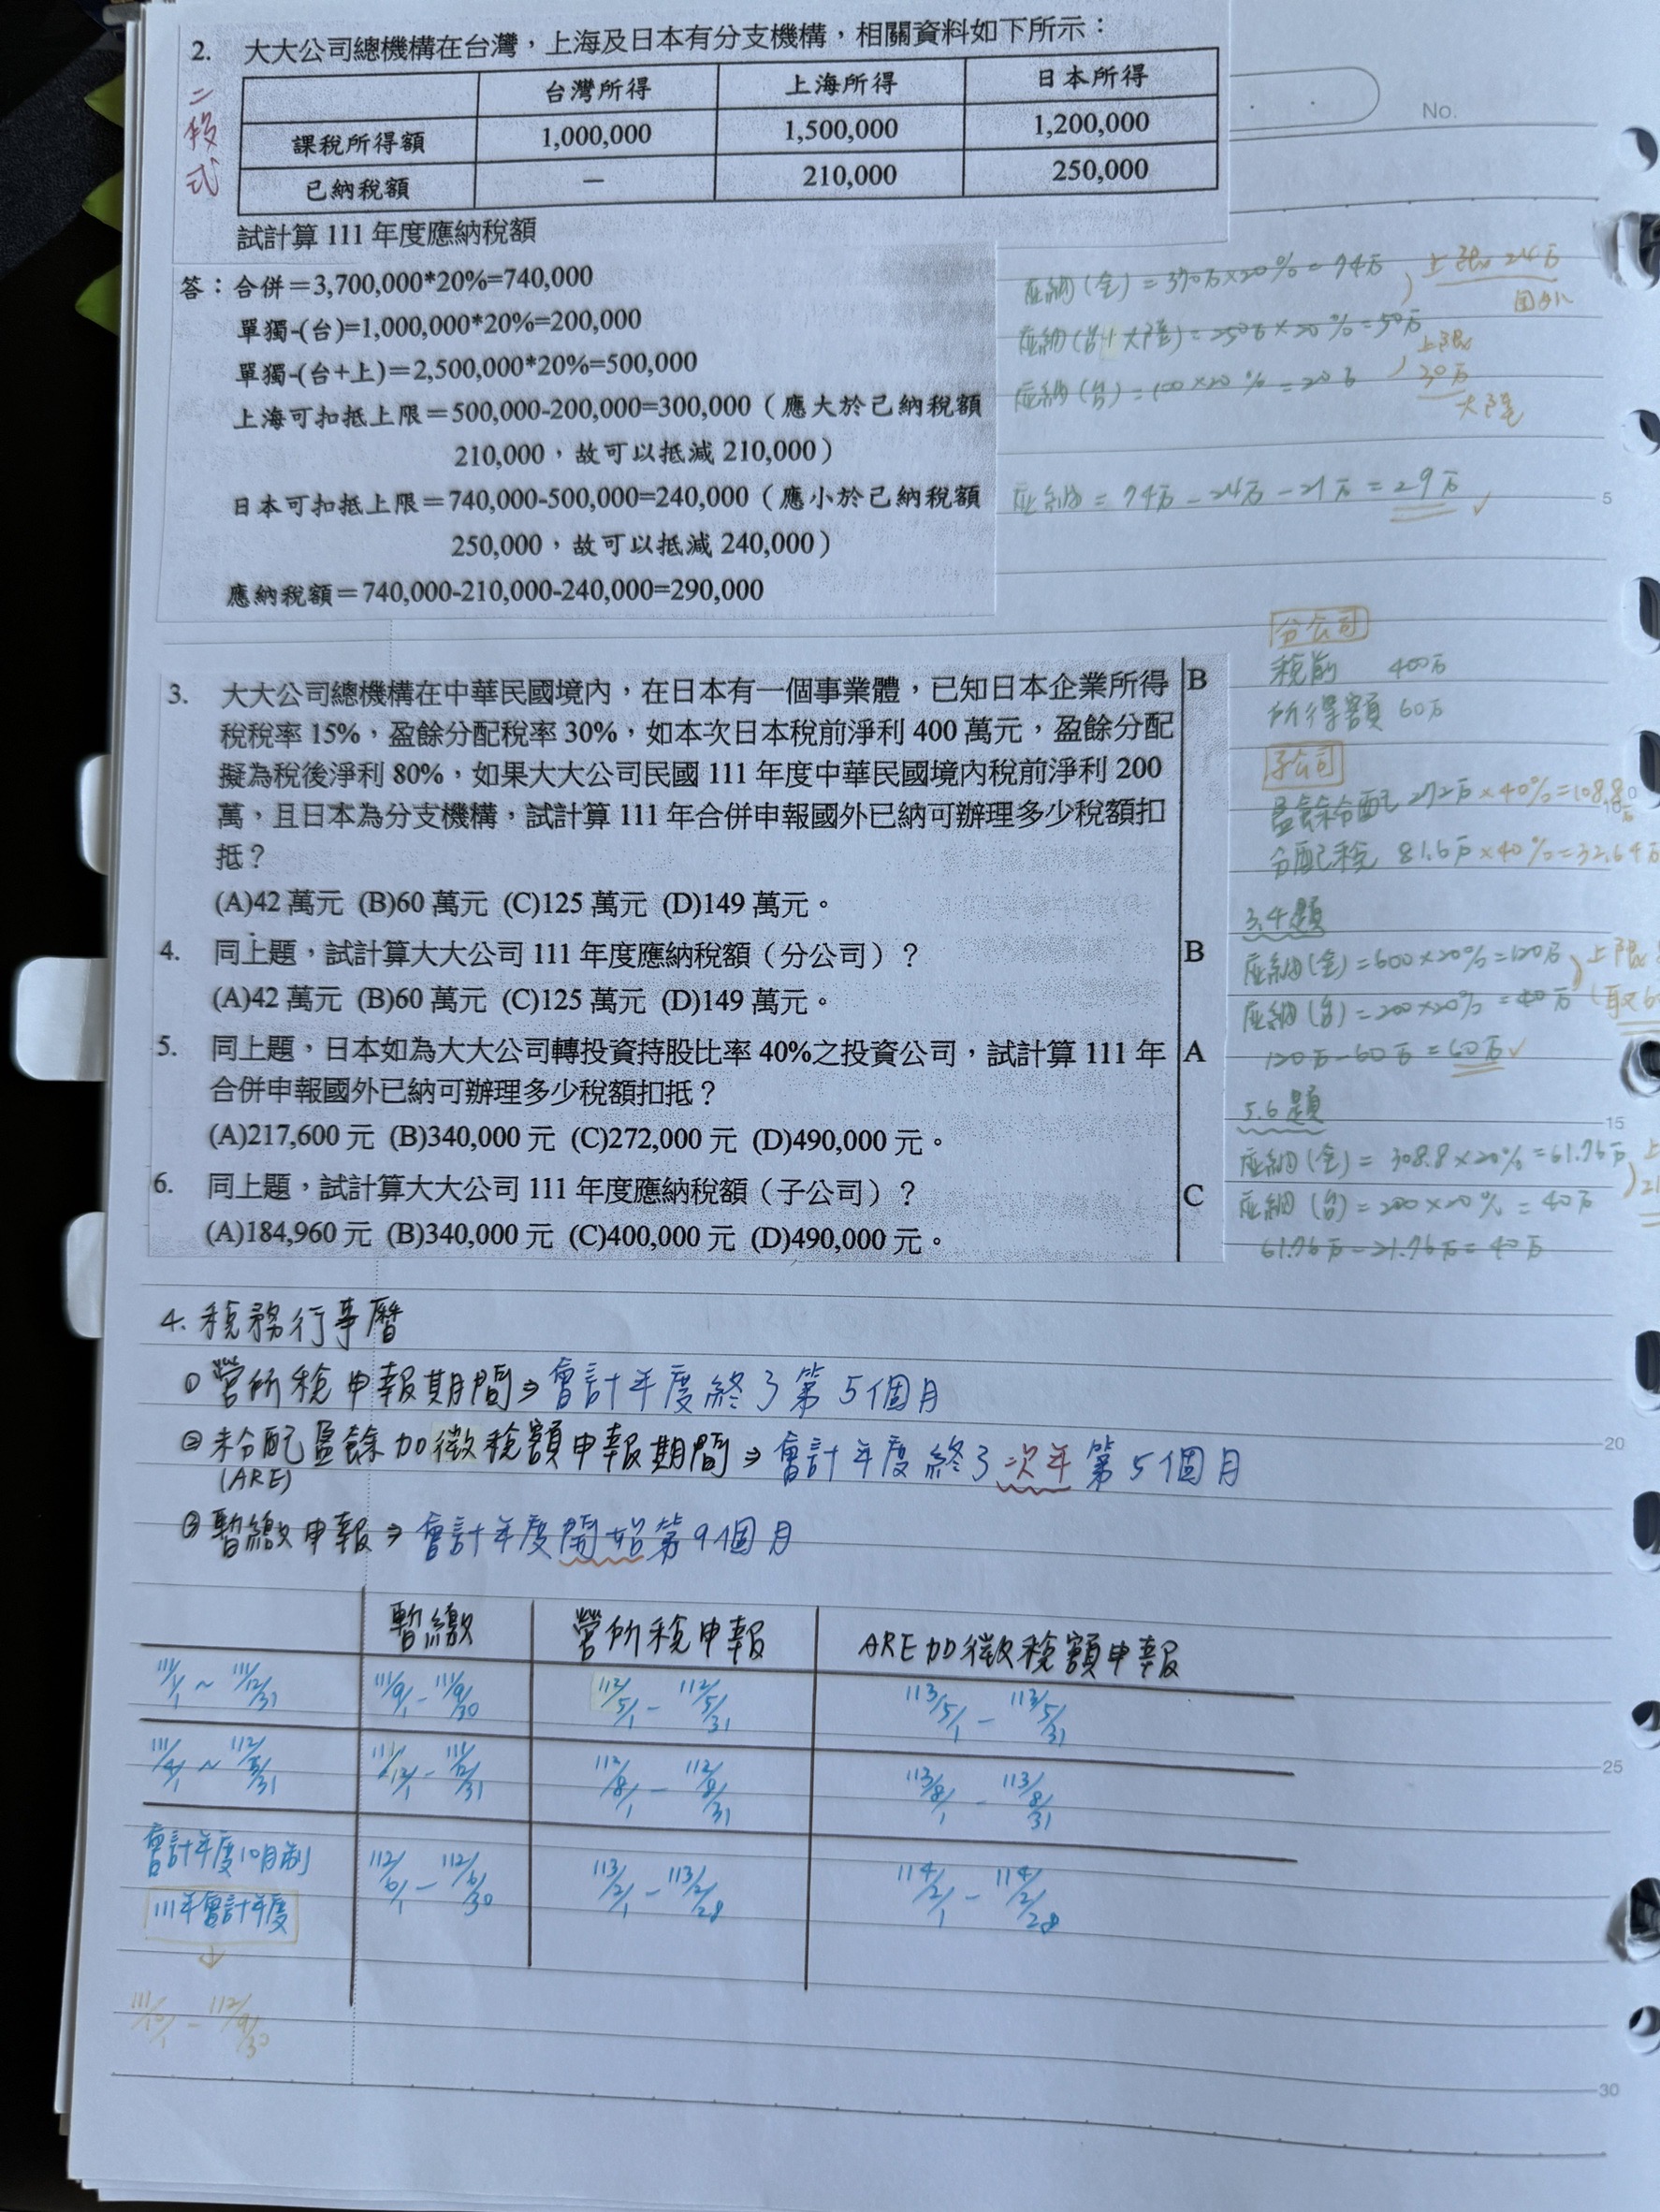 2. 大大公司總機構在台灣，上海及日本有分支機構，相關資料如下所示：
二段式
台灣所得 上海所得 日本所得
課稅所得額 1,000,000 1,500,000 1,200,000
已納稅額 － 210,000 250,000
試計算 111 年度應納稅額
答：合併＝3,700,000*20%=740,000
單獨-(台)=1,000,000*20%=200,000
單獨-(台+上)＝2,500,000*20%=500,000
上海可扣抵上限＝500,000-200,000=300,000（應大於已納稅額
210,000，故可以抵減 210,000）
日本可扣抵上限＝740,000-500,000=240,000（應小於已納稅額
250,000，故可以抵減 240,000）
應納稅額＝740,000-210,000-240,000=290,000
No.
应納(全)＝370万×20%＝74万
上限 24万
国外
应納(台+大陸)＝250万×20%＝50万
应納(台)＝100×20%＝20万
上限
30万
大陸
应納＝74万－24万－21万＝29万✓
5
3. 大大公司總機構在中華民國境內，在日本有一個事業體，已知日本企業所得 B
稅稅率 15%，盈餘分配稅率 30%，如本次日本稅前淨利 400 萬元，盈餘分配
擬為稅後淨利 80%，如果大大公司民國 111 年度中華民國境內稅前淨利 200
萬，且日本為分支機構，試計算 111 年合併申報國外已納可辦理多少稅額扣
抵？
(A)42 萬元 (B)60 萬元 (C)125 萬元 (D)149 萬元。
4. 同上題，試計算大大公司 111 年度應納稅額（分公司）？ B
(A)42 萬元 (B)60 萬元 (C)125 萬元 (D)149 萬元。
5. 同上題，日本如為大大公司轉投資持股比率 40%之投資公司，試計算 111 年 A
合併申報國外已納可辦理多少稅額扣抵？
(A)217,600 元 (B)340,000 元 (C)272,000 元 (D)490,000 元。
6. 同上題，試計算大大公司 111 年度應納稅額（子公司）？ C
(A)184,960 元 (B)340,000 元 (C)400,000 元 (D)490,000 元。
分公司
稅前 400万
所得額 60万
子公司
盈餘分配 272万×40%＝108.8
分配稅 81.6万×40%＝32.64万
3.4題
应納(全)＝600×20%＝120万 上限
应納(台)＝200×20%＝40万
120万－60万＝60万✓
5.6題
15
应納(全)＝308.8×20%＝61.76万
应納(台)＝200×20%＝40万
61.76万－21.76万＝40万
4. 稅務行事曆
① 營所稅申報期間⇒會計年度終了第5個月
② 未分配盈餘加徵稅額申報期間⇒會計年度終了次年第5個月
20
(ARE)
③ 暫繳申報⇒會計年度開始第9個月
暫繳 營所稅申報 ARE加徵稅額申報
111/1/1 ~ 111/12/31 111/9/1 - 111/9/30 112/5/1 - 112/5/31 113/5/1 - 113/5/31
111/4/1 ~ 112/3/31 111/12/1 - 111/12/31 112/8/1 - 112/8/31 113/8/1 - 113/8/31
25
會計年度10月制 112/6/1 - 112/6/30 113/2/1 - 113/2/28 114/2/1 - 114/2/28
111年會計年度
↓
111/10/1 - 112/9/30
30